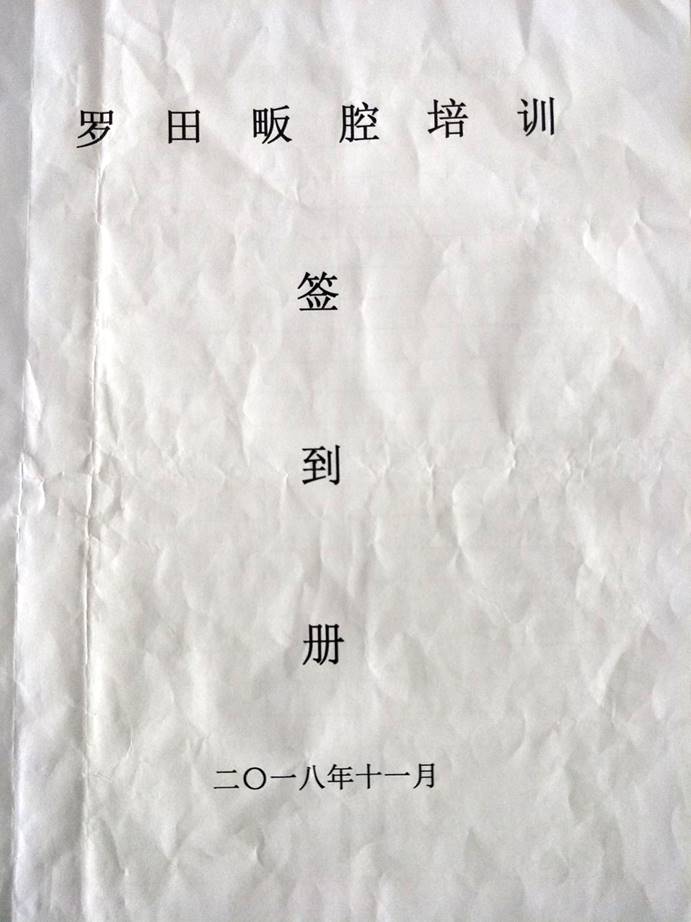 罗田畈腔培训
签
到
册
二〇一八年十一月